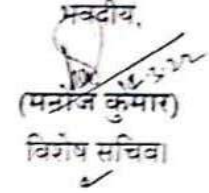 भवदीय,
(मनोज कुमार)
विशेष सचिव।